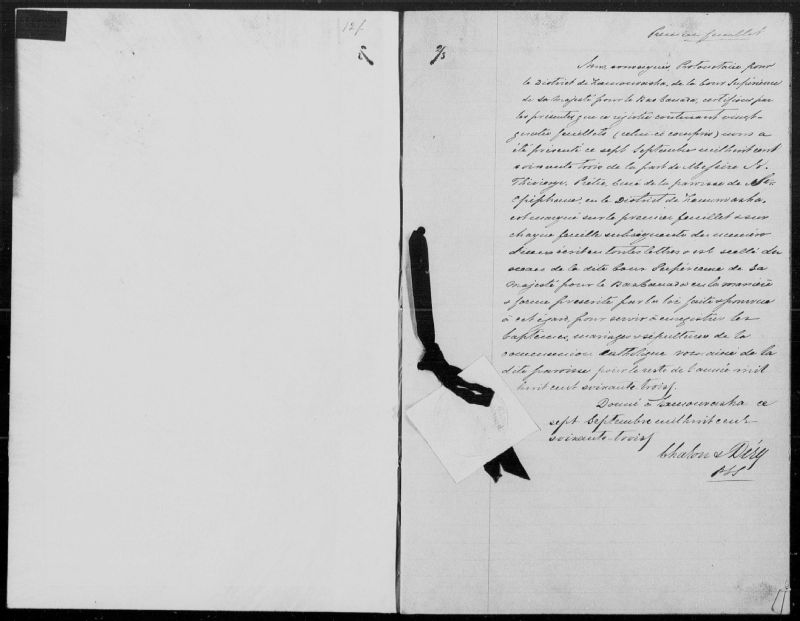 12f
Premier feuillet
Nous soussignés, Protonotaire, pour
le District de Kamouraska, de la Cour Supérieure
de sa majesté pour le Bas Canada, certifions par
les présentes que ce registre contenant vingt-
quatre feuillets (celui-ci compris) nous a
été présenté ce sept Septembre mil huit cent
soixante trois de la part de Messire
Thivierge, Prêtre, curé de la paroisse de St.
Epiphane, en le District de Kamouraska,
est marqué sur le premier feuillet & sur
chaque feuillet subséquents du numéro
écrit en toutes lettres & est scellé du
sceau de la dite Cour Supérieure de Sa
majesté pour le Bas Canada en la manière
& forme prescrite par la loi faite & pourvue
à cet égard, pour servir à enregistrer les
baptêmes, mariages & sépultures de la
communion catholique romaine de la
dite paroisse pour le reste de l'année mil
huit cent soixante trois.
Donné à Kamouraska ce
sept Septembre mil huit cent
soixante-trois
Chalou & Déry
PCS